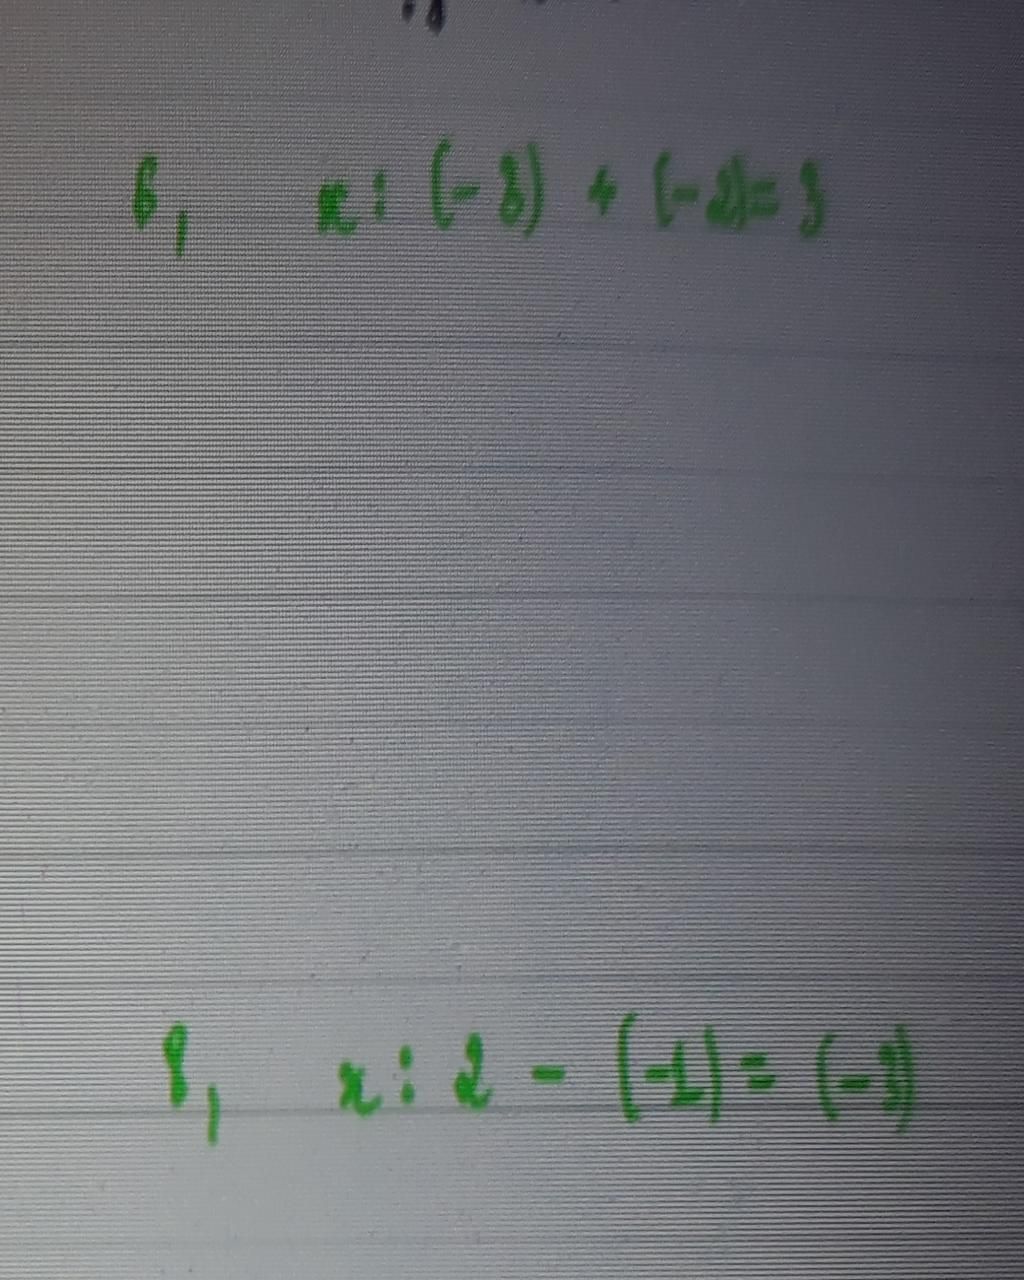 6, x : (-3) + (-2) = 3
8, x : 2 - (-1) = (-3)